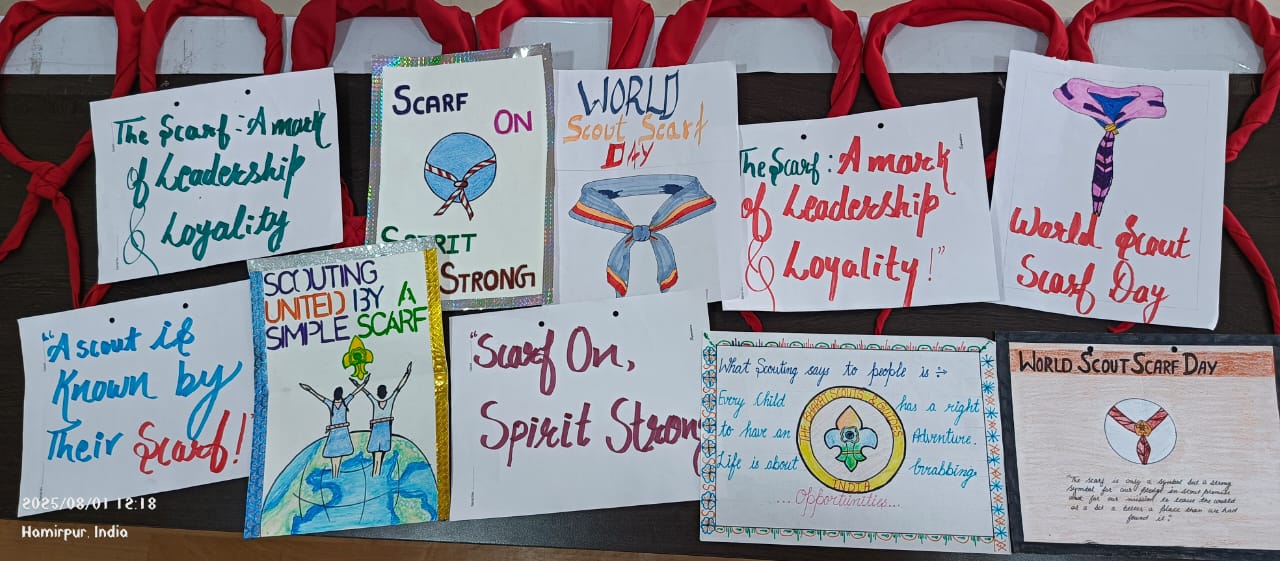 The Scarf : A mark
of Leadership
& Loyality
SCARF
ON
SPIRIT
STRONG
WORLD
Scout Scarf
DAY
The Scarf : A mark
of Leadership
& Loyality!"
World Scout
Scarf Day
"A scout is
Known by
Their Scarf!"
SCOUTING
UNITED BY A
SIMPLE SCARF
"Scarf On,
Spirit Strong
What Scouting says to people is :-
Every Child has a right
to have an Adventure.
Life is about Grabbing
...Opportunities...
THE BHARAT SCOUTS & GUIDES
INDIA
WORLD SCOUT SCARF DAY
"The scarf is only a symbol but a strong
symbol for our pledge in scout promise
and for our mission to leave the world
as a bit a better a place than we had
found it."
2025/08/01 12:18
Hamirpur, India